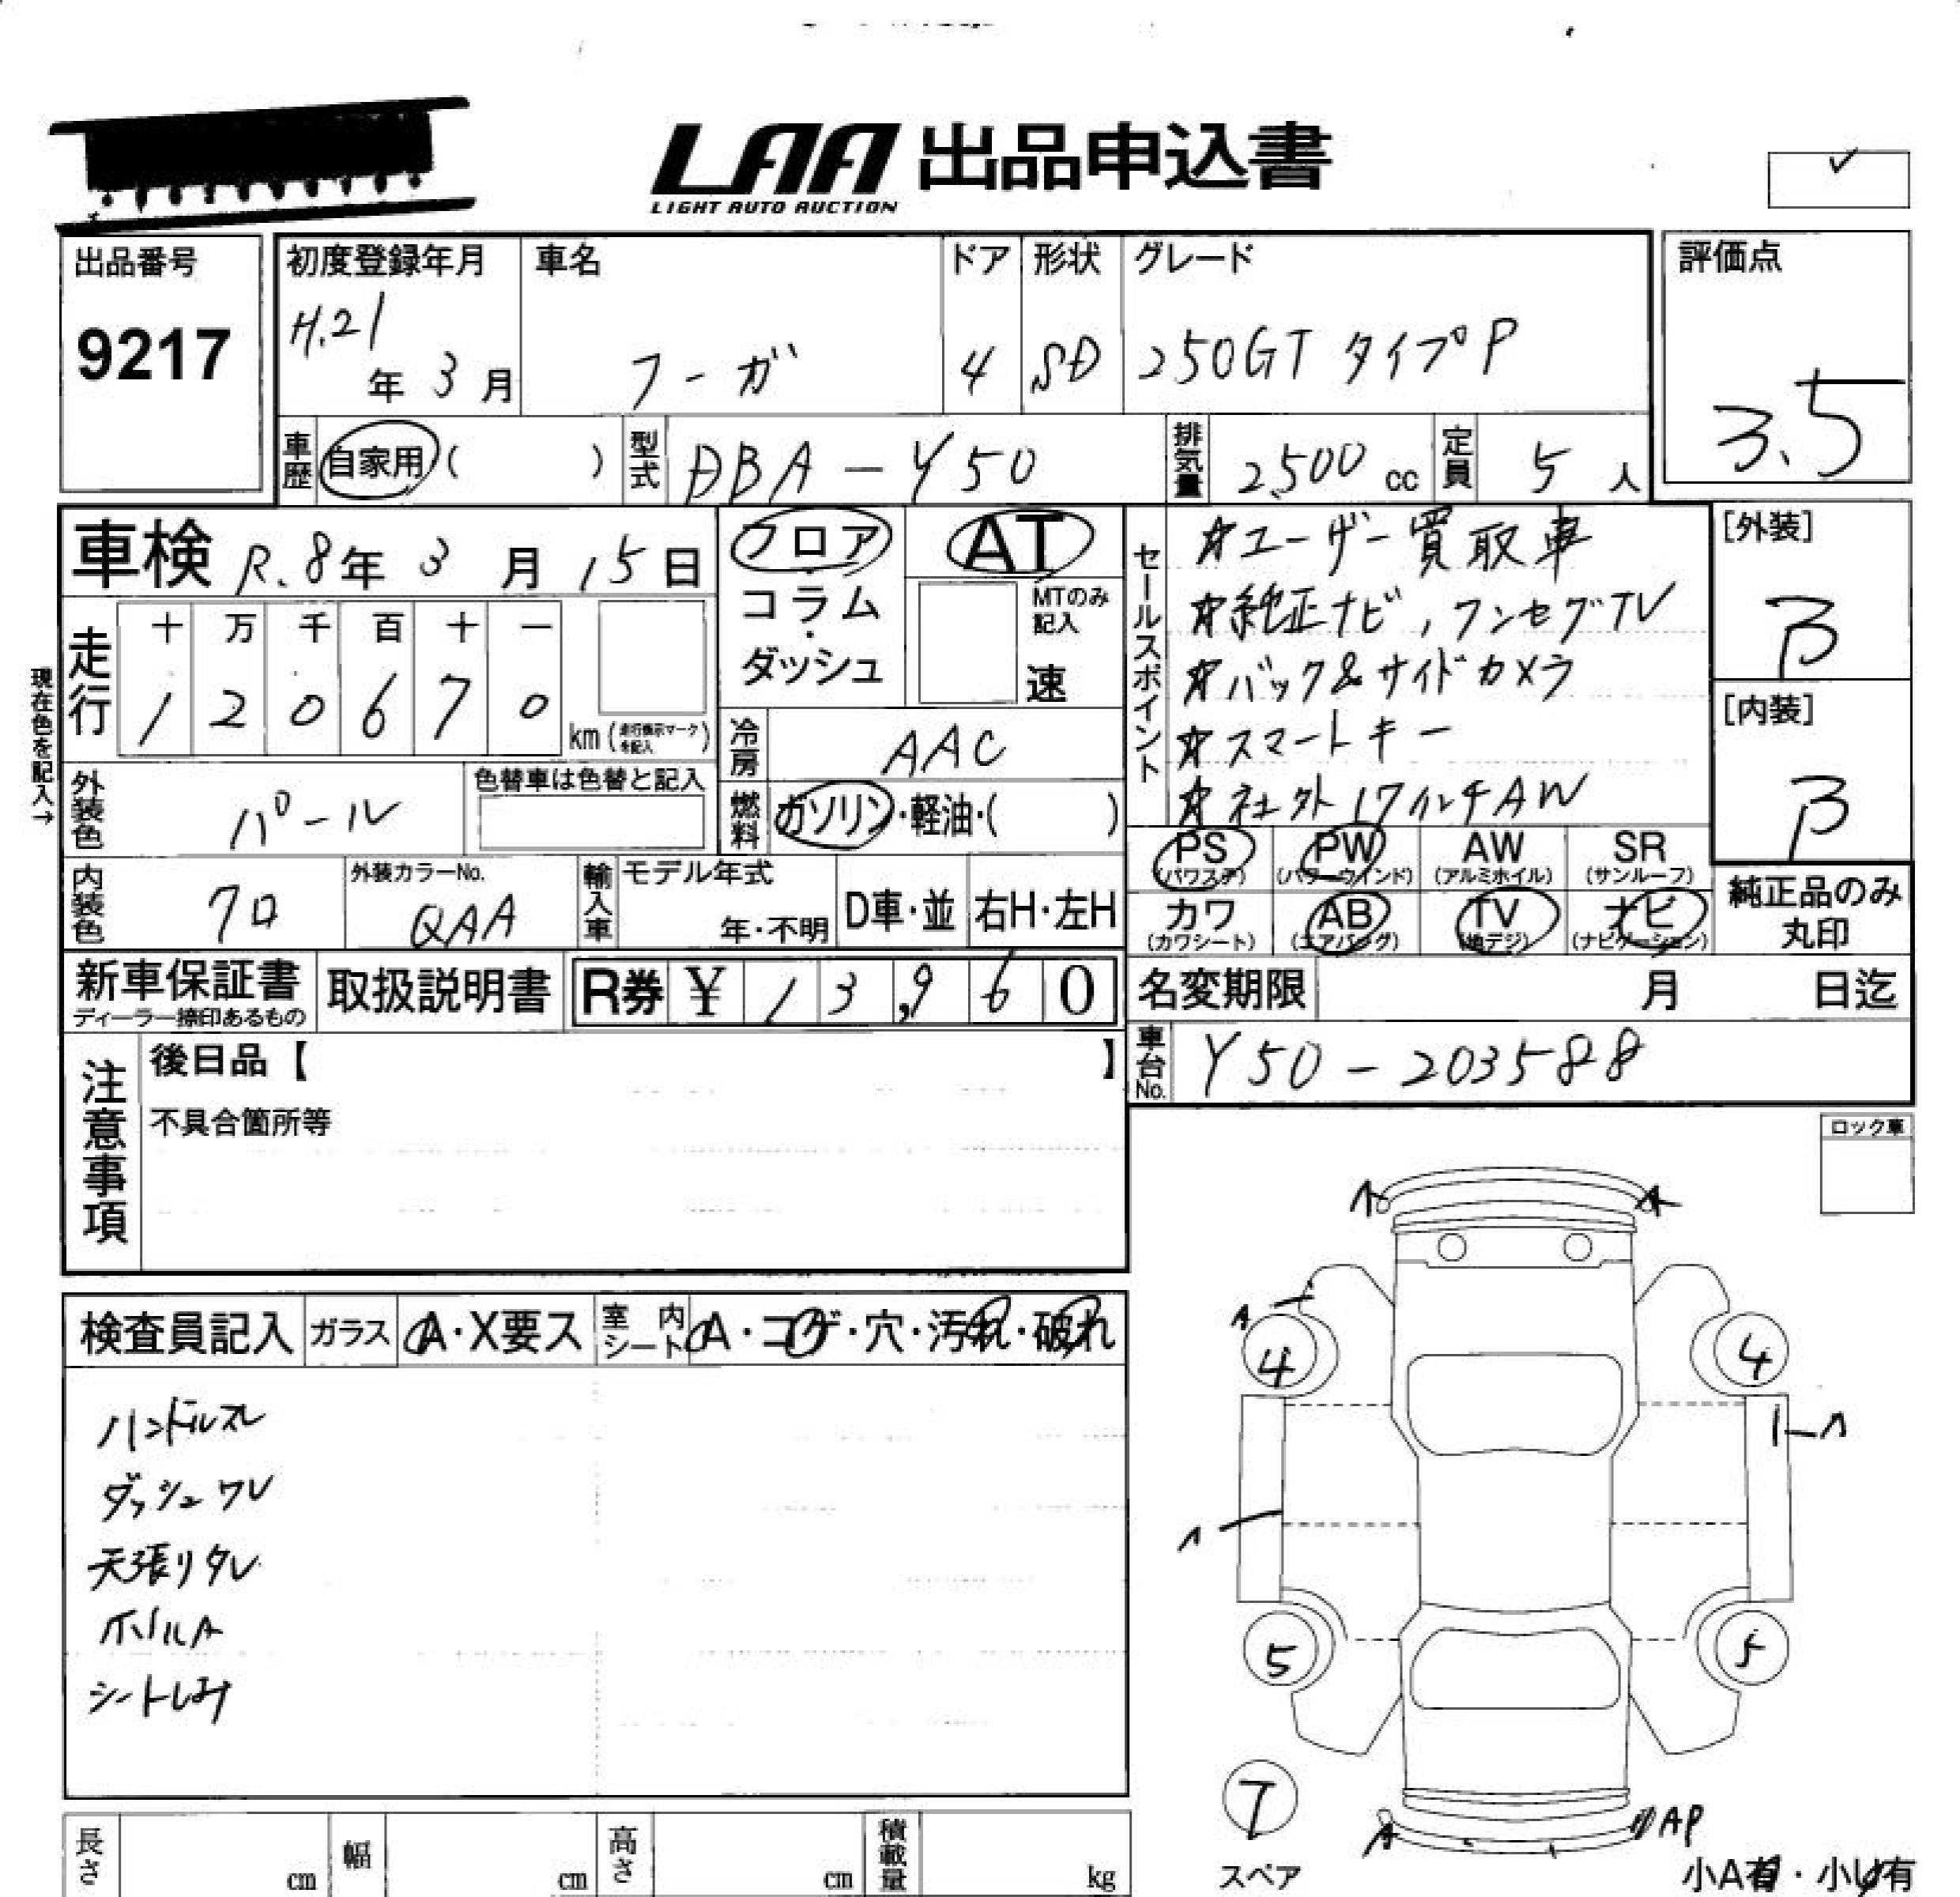 LAA 出品申込書
LIGHT AUTO AUCTION
出品番号
9217
初度登録年月
H.21年 3月
車名
フーガ
ドア
4
形状
SD
グレード
250GT タイプP
評価点
3.5
車歴 自家用 ( )
型式 DBA-Y50
排気量 2,500 cc
定員 5 人
車検 R.8年 3月 15日
フロア・コラム・ダッシュ
AT
MTのみ記入
速
走行
十 万 千 百 十 一
1 2 0 6 7 0
km (走行表示マークを記入)
現在色を記入→
冷房 AAC
燃料 ガソリン・軽油・( )
外装色 パール
色替車は色替と記入
内装色 クロ
外装カラーNo. QAA
輸入車
モデル年式
年・不明
D車・並
右H・左H
セールスポイント
☆ユーザー買取車
☆純正ナビ,ワンセグTV
☆バック&サイドカメラ
☆スマートキー
☆社外17インチAW
[外装]
B
[内装]
B
PS (パワステ)
PW (パワーウインド)
AW (アルミホイル)
SR (サンルーフ)
カワ (カワシート)
AB (エアバッグ)
TV (地デジ)
ナビ (ナビゲーション)
純正品のみ丸印
新車保証書
ディーラー捺印あるもの
取扱説明書
R券 ¥ 13,960
名変期限 月 日迄
車台No. Y50-203588
注意事項
後日品【 】
不具合箇所等
ロック車
検査員記入
ガラス A・X要ス
室内シート A・コゲ・穴・汚れ・破れ
ハンドルスレ
ダッシュワレ
天張りタレ
ホイルA
シートしみ
A
A
A
4
4
A
A
5
5
T
スペア
A
AP
小A有・小U有
長さ cm
幅 cm
高さ cm
積載量 kg